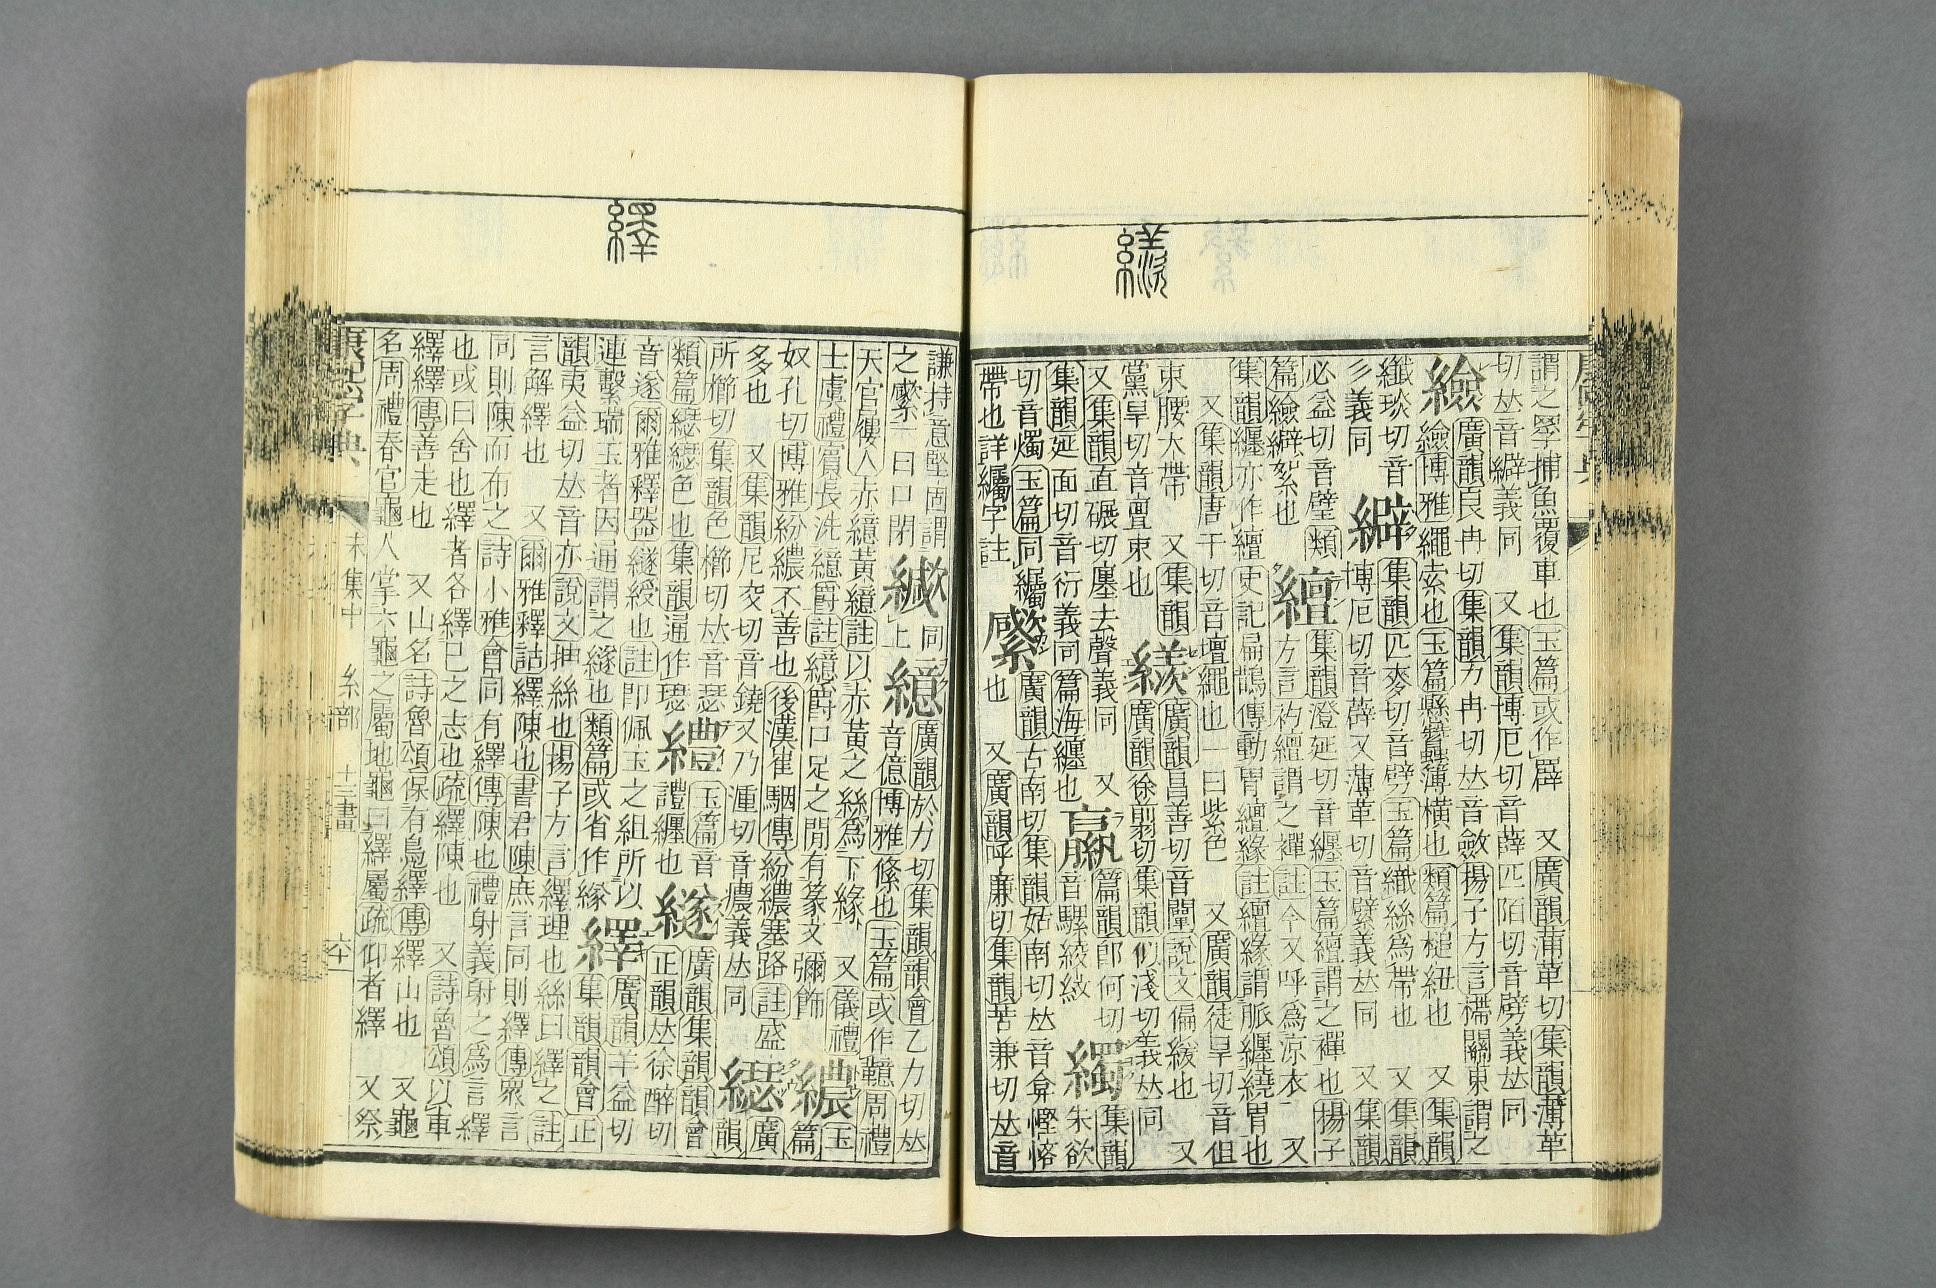 繹
謂之罦捕魚覆車也玉篇或作 又廣韻蒲革切集韻薄革
切𠀤音繴義同 又集韻博厄切音薜匹陌切音劈義𠀤同
繬
廣韻良冉切集韻力冉切𠀤音斂揚子方言 關東謂之
博雅繩索也玉篇懸蠶薄橫也類篇槌紐也 又集韻
纖琰切音
彡義同
繲
集韻匹麥切音劈玉篇織絲爲帶也 又集韻
博厄切音薜又薄革切音襞義𠀤同 又集韻
必益切音璧類
篇 絮也
繵
集韻澄延切音纏玉篇繵謂之襌也揚子
方言袀繵謂之襌註今又呼爲涼衣 又
集韻纏亦作繵史記扁鵲傳動胃繵緣註繵緣謂脈纏繞胃也
又集韻唐干切音壇繩也一曰紫色 又廣韻徒旱切音但
束腰大帶 又集韻
黨旱切音亶束也
繟
廣韻昌善切音闡說文偏緩也 又
廣韻徐翦切集韻似淺切義𠀤同
又集韻直碾切廛去聲義同 又
集韻延面切音衍義同篇海纏也
音騾絞紋
篇韻郎何切
繲
集韻
朱欲
切音燭玉篇同䌫
帶也詳䌫字註
廣韻古南切集韻姑南切𠀤音弇慳悋
也 又廣韻呼廉切集韻苦兼切𠀤音
謙持意堅固謂
之 一曰口閉
同
上
繶
廣韻於力切集韻韻會乙力切𠀤
音億博雅絛也玉篇或作䪰周禮
天官屨人赤繶黃繶註以赤黃之絲爲下緣 又儀禮
士虞禮賓長洗繶爵註繶爵口足之閒有篆文彌飾
繷
玉
篇
奴孔切博雅紛繷不善也後漢崔駰傳紛繷塞路註盛
多也 又集韻尼交切音鐃又乃湩切音癑義𠀤同
廣
韻
所櫛切集韻色櫛切𠀤音瑟
類篇 色也集韻通作瑟
禮
玉篇音
禮纏也
繸
廣韻集韻韻會
正韻𠀤徐醉切
音遂爾雅釋器繸綬也註卽佩玉之組所以
連繫瑞玉者因通謂之繸也類篇或省作
繹
廣韻羊益切
集韻韻會正
韻夷益切𠀤音亦說文抽絲也揚子方言繹理也絲曰繹之註
言解繹也 又爾雅釋詁繹陳也書君陳庶言同則繹傳衆言
同則陳而布之詩小雅會同有繹傳陳也禮射義射之爲言繹
也或曰舍也繹者各繹己之志也疏繹陳也 又詩魯頌以車
繹繹傳善走也 又山名詩魯頌保有鳧繹傳繹山也 又龜
名周禮春官龜人掌六龜之屬地龜曰繹屬疏仰者繹 又祭
康熙字典 未集中 糸部 十三畫